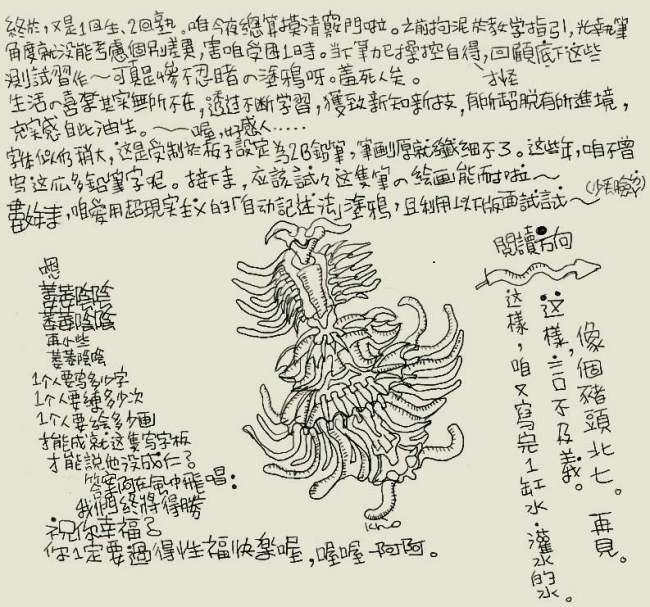 終於,又是1回生、2回熟。咱今夜總算摸清竅門啦。之前拘泥於教学指引,光執筆
角度就没能考慮個別差異,害咱受困1日時。当下筆力已操控自得,回顧底下这些
測試習作~可真是慘不忍睹の塗鴉呀。羞死人矣。
才怪
生活の喜樂其实無所不在,透过不断学習,獲致新知新技,有所超脱有所進境,
充实感自此油生。~喔,好感人.....
字体似仍稍大,这是受制於板子設定為2B鉛筆,筆劃厚就纖細不了。这些年,咱不曾
寫这広多鉛筆字呢。接下來,应該試々这隻筆の绘画能耐啦~
咱愛用超現实主义的「自动記述法」塗鴉,且利用以下版面試試~
閱讀方向
嗯
萋萋陰陰
萋萋陰陰
再小些
萋萋陰陰
1个人要写多少字
1个人要練多少次
1个人要绘多少画
才能成就这隻写字板
才能說他没成仁了
答案啊在風中飛唱:
我們終將得勝
祝你幸福了
你1定要過得性福快樂喔,喔喔~阿阿。
这樣,咱又寫完1缸水.灌水的水。
这樣,言不及義。
像個豬頭北七。再見。